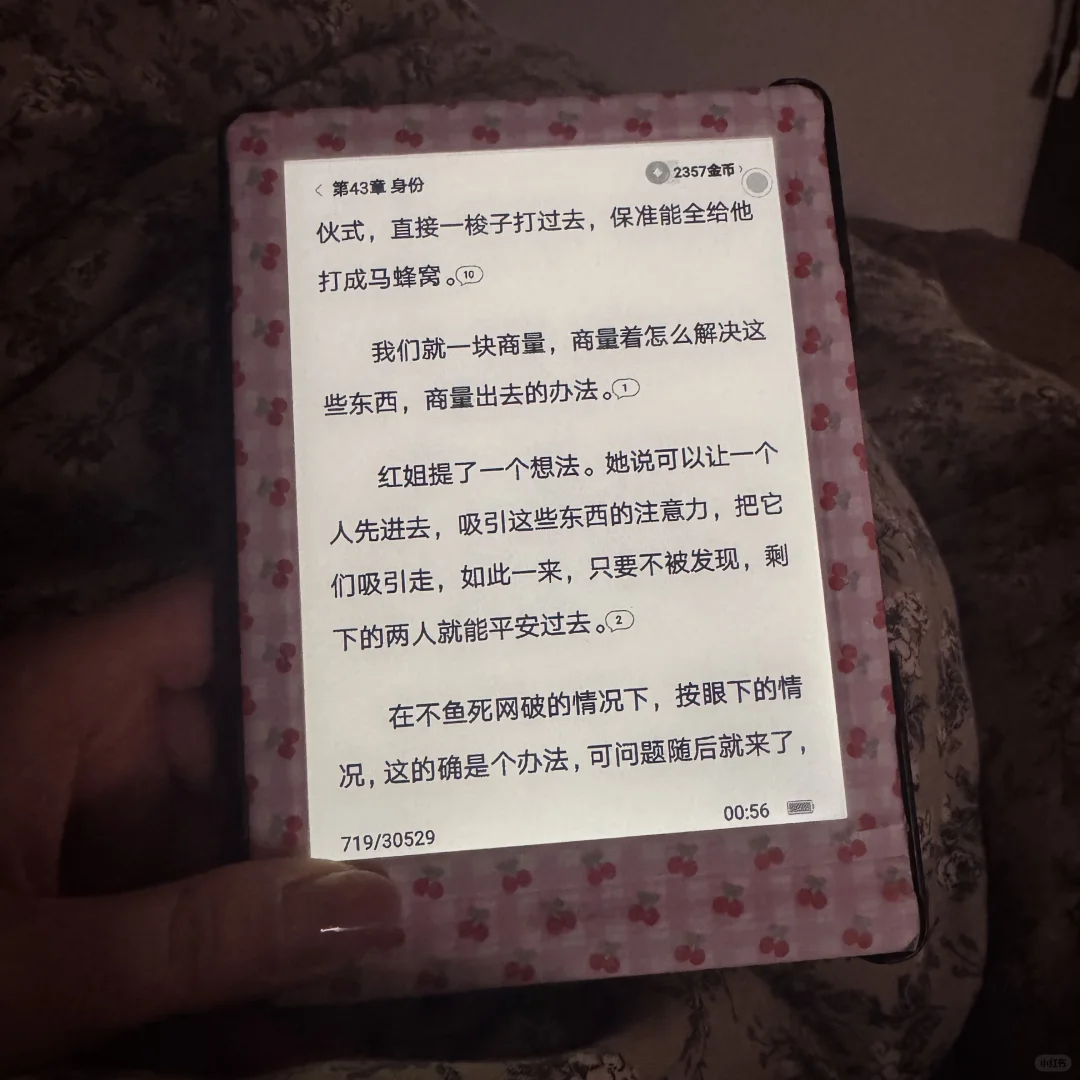 第43章 身份
2357金币
伙式，直接一梭子打过去，保准能全给他
打成马蜂窝。10
我们就一块商量，商量着怎么解决这
些东西，商量出去的办法。1
红姐提了一个想法。她说可以让一个
人先进去，吸引这些东西的注意力，把它
们吸引走，如此一来，只要不被发现，剩
下的两人就能平安过去。2
在不鱼死网破的情况下，按眼下的情
况，这的确是个办法，可问题随后就来了，
719/30529
00:56
小红书